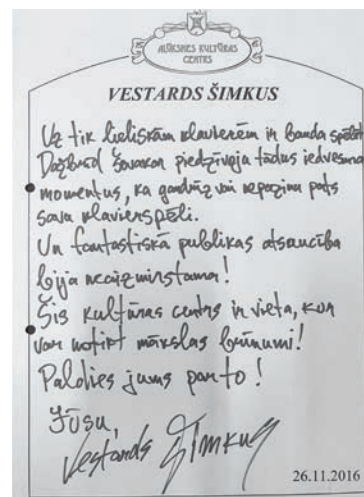 ALŪKSNES KULTŪRAS
CENTRS
VESTARDS ŠIMKUS
Uz tik lieliskām klavierēm ir bauda spēlēt
Dažbrīd šovakar piedzīvoju tādus iedvesmas
momentus, ka gandrīz vai nepazinu pats
savu klavierspēli.
Un fantastiskā publikas atsaucība
bija neaizmirstama!
Šis kultūras centrs ir vieta, kur
var notikt mākslas brīnumi!
Paldies jums par to!
Jūsu,
Vestards Šimkus
26.11.2016